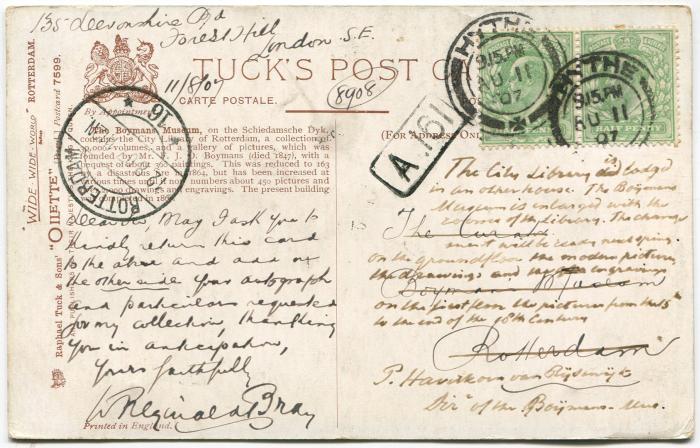 135 Devonshire Rd
Forest Hill
London. S.E.
11/8/07
TUCK'S POST CA
CARTE POSTALE.
8908
By Appointment
WIDE-WIDE-WORLD ROTTERDAM.
"OILETTE"
Postcard 7599.
Raphael Tuck & Sons'
The Boymans Museum, on the Schiedamsche Dyk,
contains the City Library of Rotterdam, a collection of
volumes and a gallery of pictures, which was
founded by Mr. F. J. Boymans (died 1847), with a
bequest of about 360 paintings. This was reduced to 163
a disastrous 1864, but has been increased at
various times until it now numbers about 450 pictures and
drawings and engravings. The present building
completed in 186
(For Address Onl
HYTHE
9.15PM
AU 11
07
HYTHE
9.15PM
AU 11
07
HALF PENNY
A.191
ROTTERDAM
Dear Sir, May I ask you to
kindly return this card
to the above and add on
the other side your autograph
and particulars requested
for my collection, thanking
you in anticipation,
Yours faithfully
W Reginald Bray
Printed in England.
The City Library is lodged
in an other house. The Boijmans
Museum is enlarged with the
rooms of the Library. The change
The Curator
ment will be ready next spring.
on the groundfloor the modern pictures,
the drawings and the engravings
Boymans Museum
on the first floor the pictures from the 15th
to the end of the 18th Century
Rotterdam
P. Haverkorn van Rijsewijk
Dirr of the Boijmans-Mus.